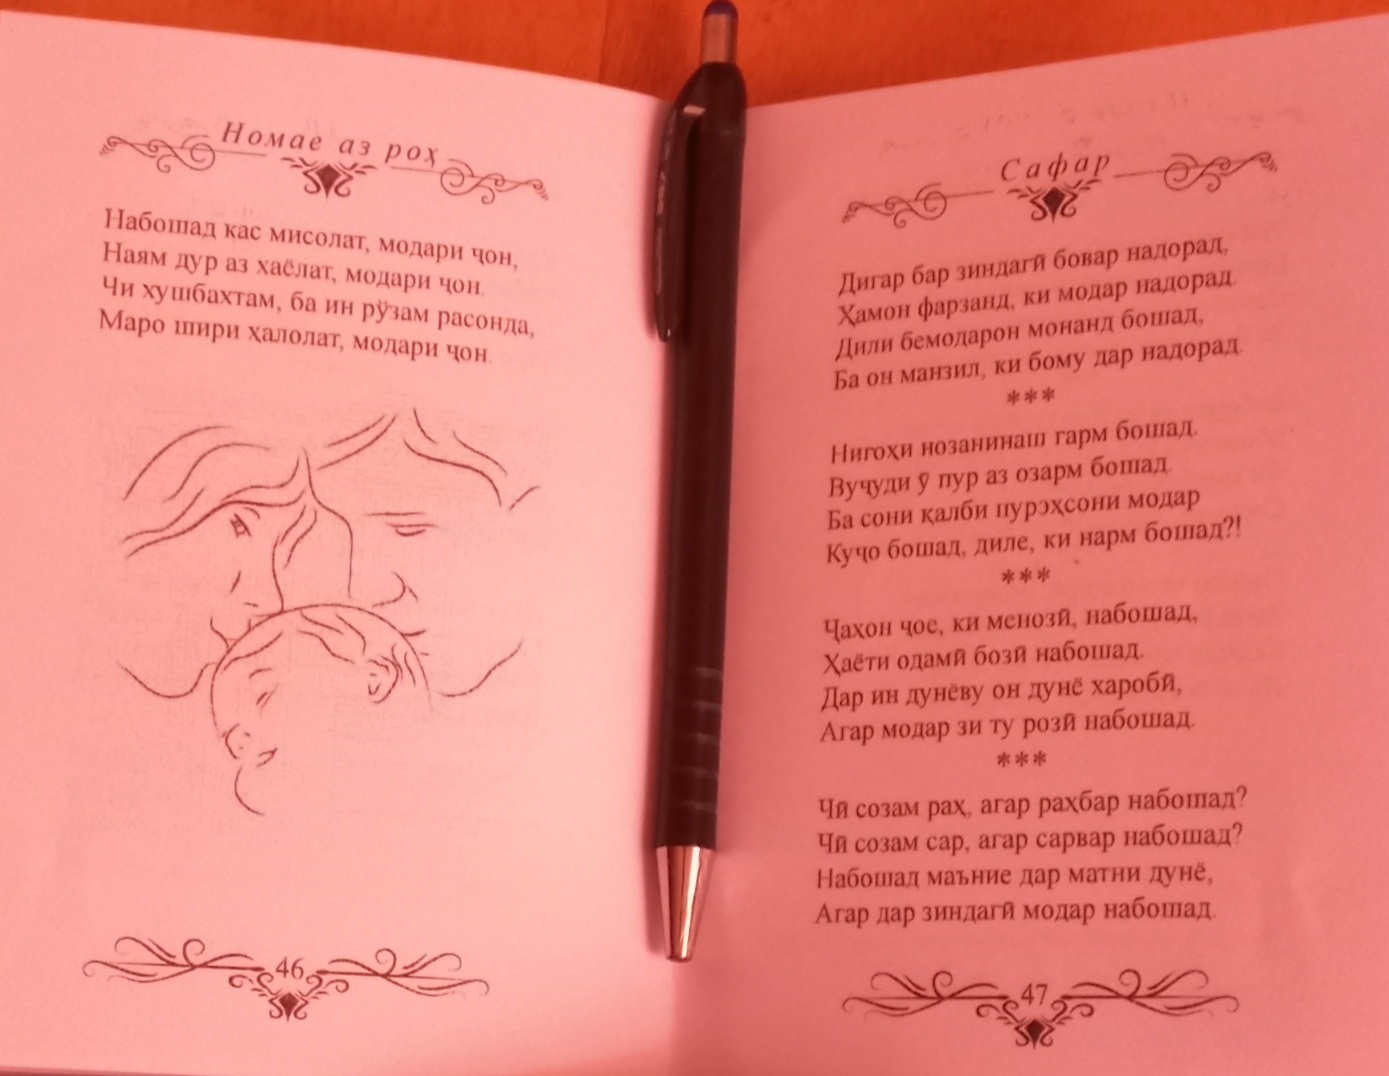 Номае аз роҳ
Набошад кас мисолат, модари ҷон,
Наям дур аз хаёлат, модари ҷон.
Чи хушбахтам, ба ин рӯзам расонда,
Маро шири ҳалолат, модари ҷон.
46
Сафар
Дигар бар зиндагӣ бовар надорад,
Ҳамон фарзанд, ки модар надорад.
Дили бемодарон монанд бошад,
Ба он манзил, ки бому дар надорад.
***
Нигоҳи нозанинаш гарм бошад.
Вуҷуди ӯ пур аз озарм бошад.
Ба сони қалби пурэҳсони модар
Куҷо бошад, диле, ки нарм бошад?!
***
Ҷаҳон ҷое, ки менозӣ, набошад,
Ҳаёти одамӣ бозӣ набошад.
Дар ин дунёву он дунё харобӣ,
Агар модар зи ту розӣ набошад.
***
Чӣ созам раҳ, агар раҳбар набошад?
Чӣ созам сар, агар сарвар набошад?
Набошад маъние дар матни дунё,
Агар дар зиндагӣ модар набошад.
47